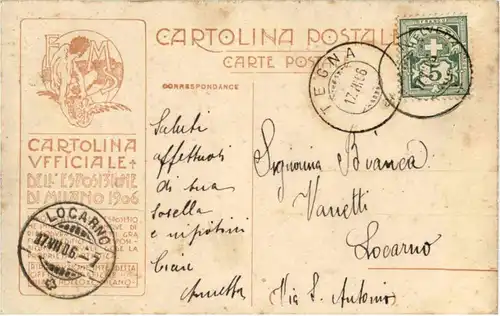 CARTOLINA POSTALE
CARTE POSTALE
CORRESPONDANCE
E M
CARTOLINA
VFFICIALE
DELL'ESPOSIZIONE
DI MILANO 1906
TEGNA
17.VII.06
5
LOCARNO
17.VII.06.-7
Saluti
affettuosi
di sua
sorella
e nipotini
Ciao
Annetta
Signorina Bianca
Vanetti
Locarno
Via S. Antonio